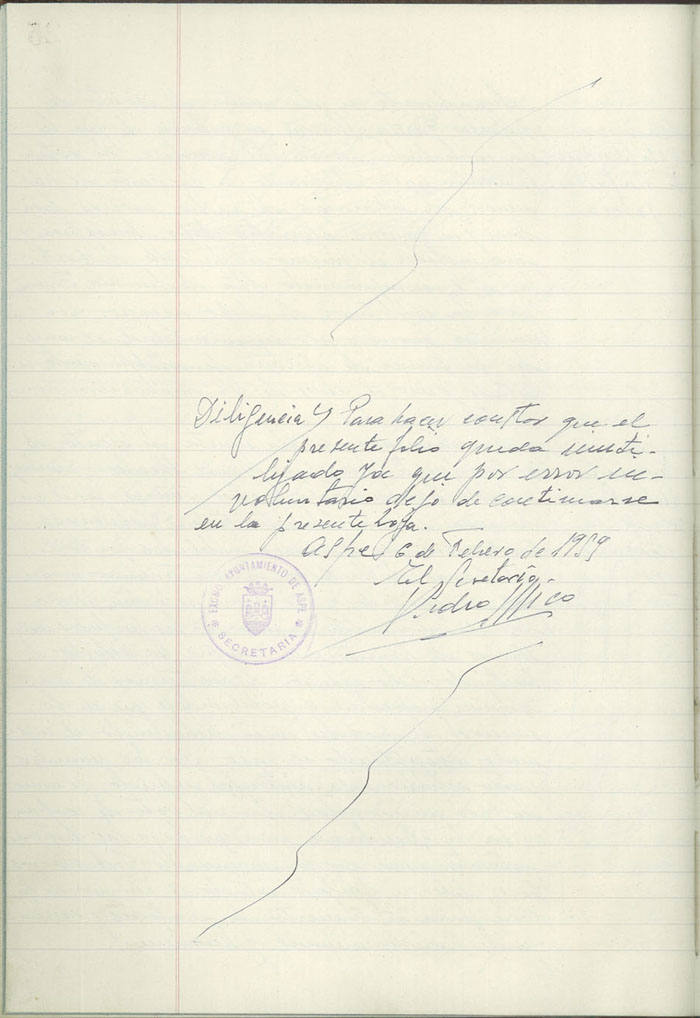 Diligencia Para hacer constar que el
presente folio queda inuti-
lizado ya que por error in-
voluntario dejó de continuarse
en la presente hoja.
Aspe 6 de Febrero de 1959
El Secretario.
Pedro Mico
EXCMO. AYUNTAMIENTO DE ASPE
SECRETARIA